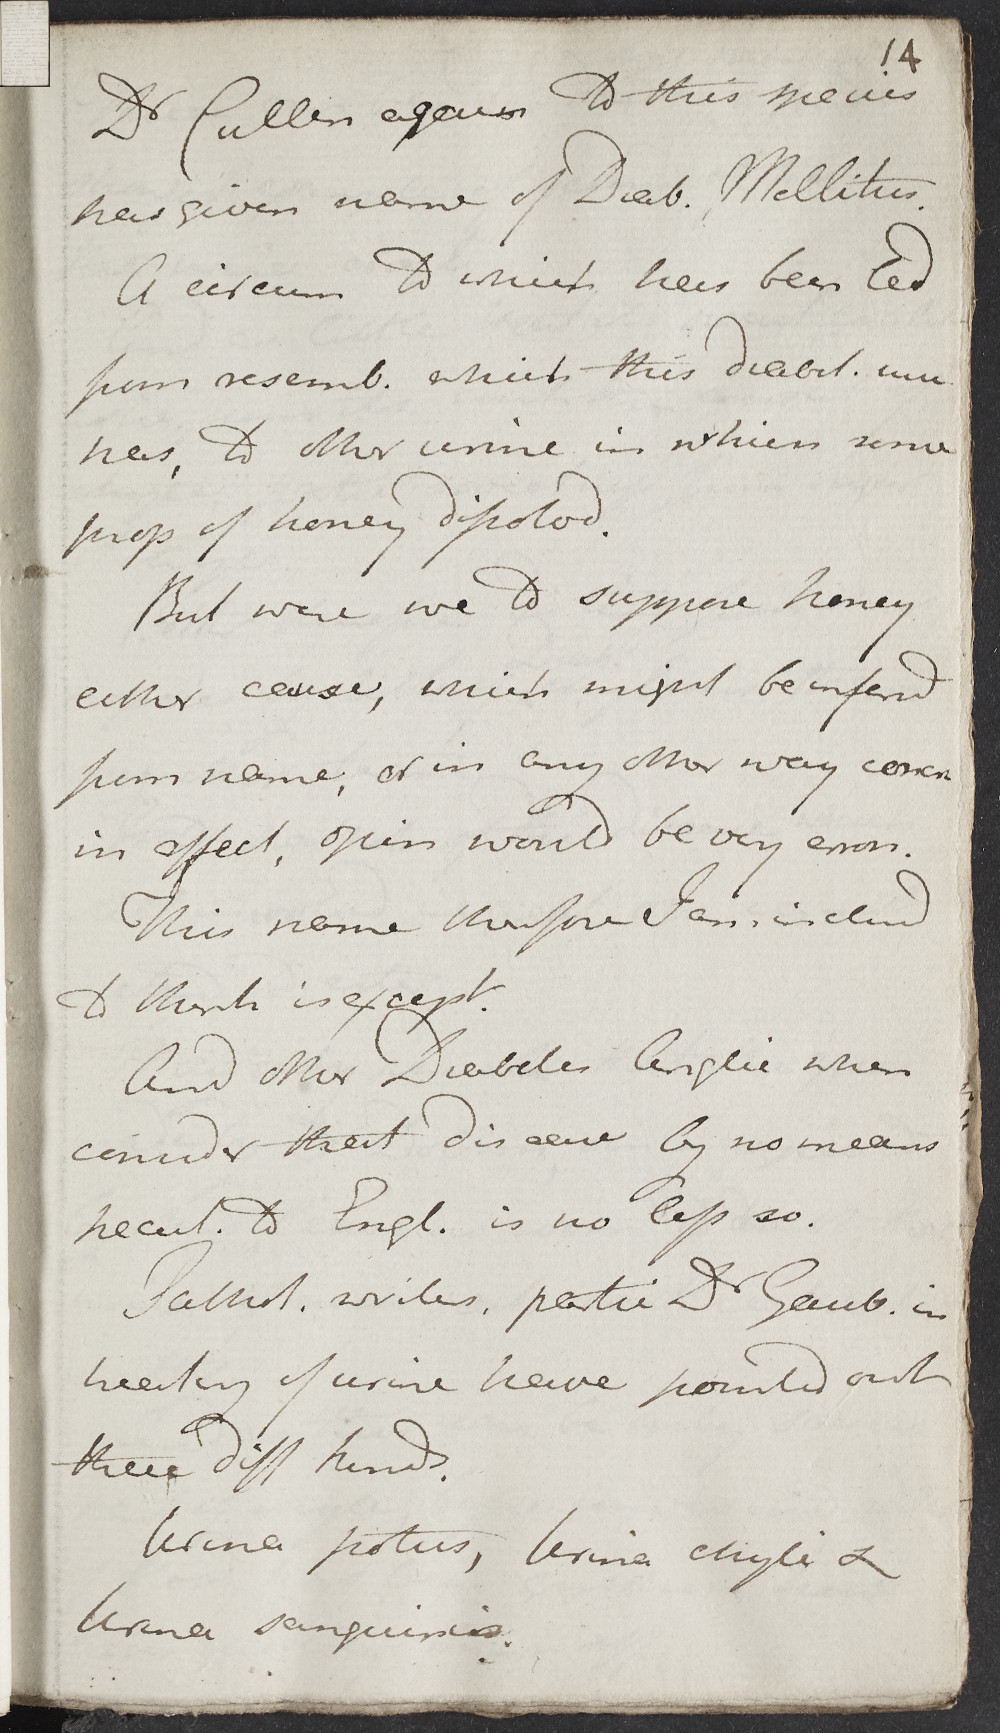 14
Dr Cullen again to this species
has given name of Diab. Mellitus.
A circum to which has been led
from resemb. which this diabet. urin
has, to other urine in which some
prop of honey dissolvd.
But were we to suppose honey
either cause, which might be inferd
from name, or in any other way concern
in affect, opin would be very erron.
This name therefore I am inclind
to think is except.
And other Diabetes Anglic when
consider that disease by no means
pecul. to Engl. is no less so.
Pathol. writers, partic Dr Gaub. in
treating of urine have pointed out
three diff kinds.
Urina potus, Urina chyli &
Urina sanguinis.